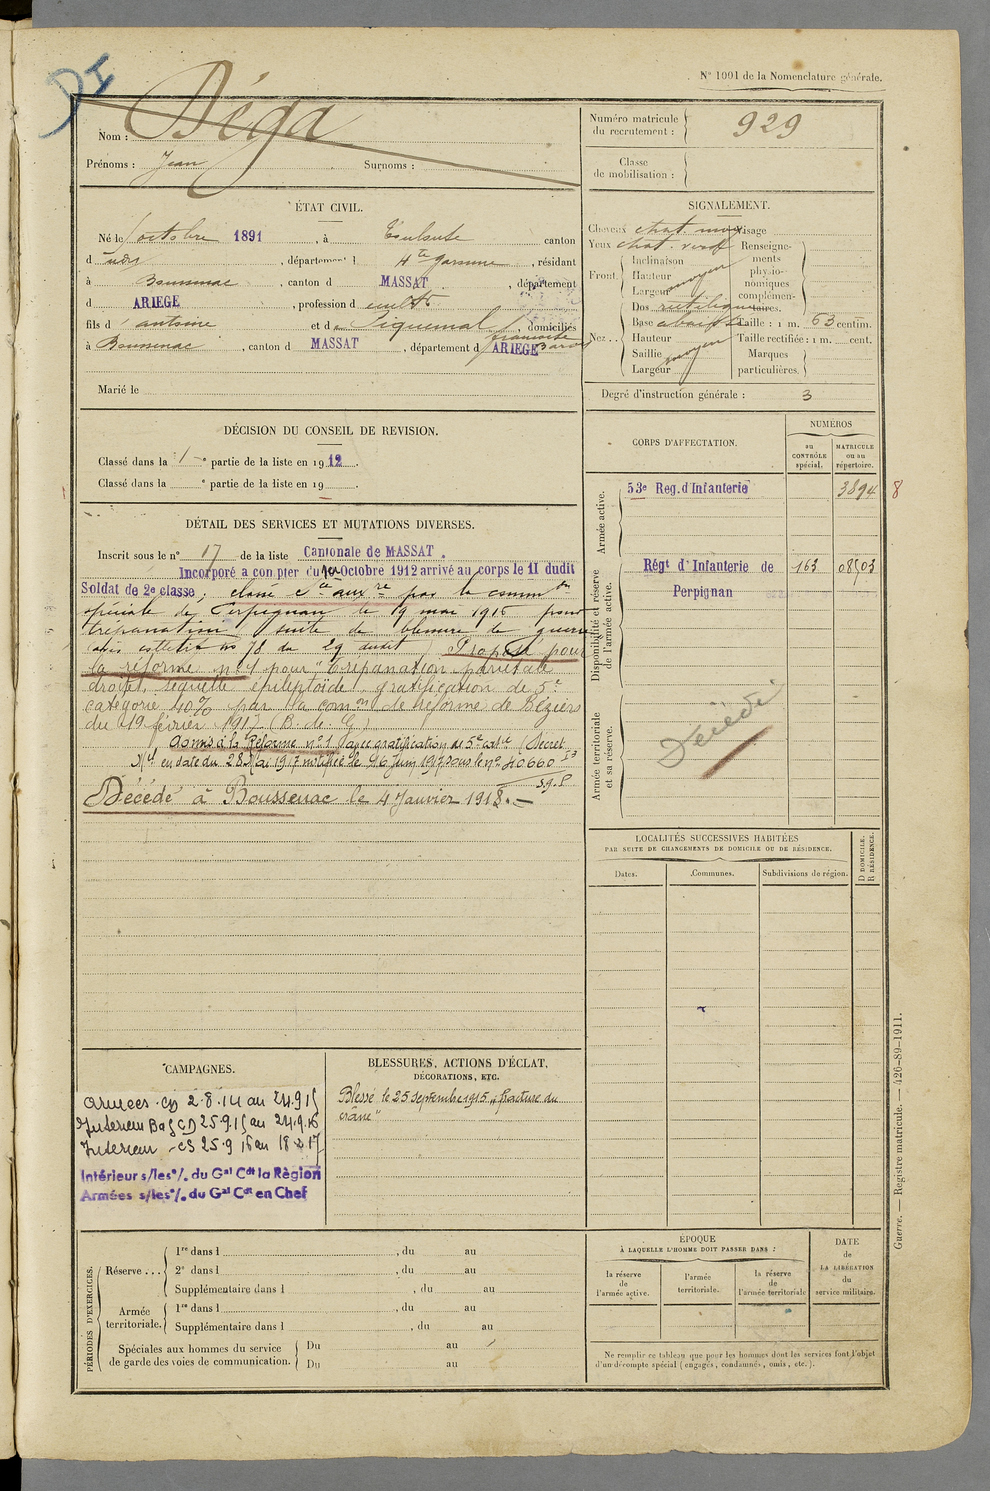 DI
N° 1001 de la Nomenclature générale.
Nom : Déga
Prénoms : Jean Surnoms :
Numéro matricule du recrutement : 929
Classe de mobilisation :
ÉTAT CIVIL.
Né le octobre 1891, à Toulouse canton
d udit, département d Hte Garonne, résidant
à Boussenac, canton d MASSAT, département
d ARIEGE, profession d cultr
fils d' antoine et de Piquemal françoise, domiciliés
à Boussenac, canton d MASSAT, département d ARIEGE
Marié le
SIGNALEMENT.
Cheveux chat. moy Visage
Yeux chat. verd Renseignements physionomiques complémentaires.
Front. Inclinaison
Hauteur moyen
Largeur
Nez.. Dos rectiligne
Base abaissée Taille : 1 m. 63 centim.
Hauteur Taille rectifiée : 1 m. cent.
Saillie moyen Marques
Largeur particulières.
Degré d'instruction générale : 3
DÉCISION DU CONSEIL DE REVISION.
Classé dans la 1 e partie de la liste en 1912.
Classé dans la e partie de la liste en 19 .
CORPS D'AFFECTATION.
NUMÉROS
au CONTRÔLE spécial.
MATRICULE ou au répertoire.
Armée active.
53e Reg. d'Infanterie 3894 8
Disponibilité et réserve de l'armée active.
Régt d'Infanterie de Perpignan 163 08503
Armée territoriale et sa réserve.
Décédé
DÉTAIL DES SERVICES ET MUTATIONS DIVERSES.
Inscrit sous le n° 17 de la liste Cantonale de MASSAT.
Incorporé à compter du 1er Octobre 1912 arrivé au corps le 11 dudit
Soldat de 2e classe; classé sce auxre par la common
spéciale de Perpignan le 19 mai 1916 pour
trépanation suite de blessure de guerre
no 78 du 29 dudit Proposé pour
la réforme n° 1 pour "Trépanation pariétale
droite, séquelle épileptoïde, gratification de 5e
catégorie 40% par la comon de réforme de Béziers
du 19 février 1917 (B. de G.)
Admis à la Réforme n° 1 avec gratification de 5e catie (Décret
Nel en date du 28 Mai 1917 notifiée le 16 Juin 1917 sous le n° 40660
Décédé à Boussenac le 4 Janvier 1918.
LOCALITÉS SUCCESSIVES HABITÉES
PAR SUITE DE CHANGEMENTS DE DOMICILE OU DE RÉSIDENCE.
Dates. Communes. Subdivisions de région. D DOMICILE. R RÉSIDENCE.
CAMPAGNES.
Armées CD 2.8.14 au 24.9.15
Intérieur CD 25.9.15 au 24.9.16
Intérieur CS 25.9.16 au 17
Intérieur s/les°/. du Gal Cdt la Région
Armées s/les°/. du Gal Cdt en Chef
BLESSURES, ACTIONS D'ÉCLAT,
DÉCORATIONS, ETC.
Blessé le 25 septembre 1915 "fracture du
crâne"
PÉRIODES D'EXERCICES.
Réserve... 1re dans l , du au
2e dans l , du au
Supplémentaire dans l , du au
Armée territoriale. 1re dans l , du au
Supplémentaire dans l , du au
Spéciales aux hommes du service de garde des voies de communication. Du au
Du au
ÉPOQUE
À LAQUELLE L'HOMME DOIT PASSER DANS :
la réserve de l'armée active. l'armée territoriale. la réserve de l'armée territoriale
DATE de LA LIBÉRATION du service militaire.
Ne remplir ce tableau que pour les hommes dont les services font l'objet
d'un décompte spécial (engagés, condamnés, omis, etc.).
Guerre. — Registre matricule. — 426-89-1911.